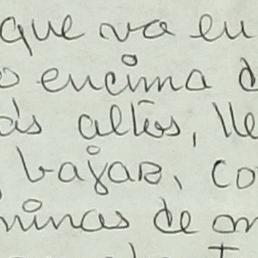 que va en
o encima d
ás altos, lle
bajar, co
minas de on